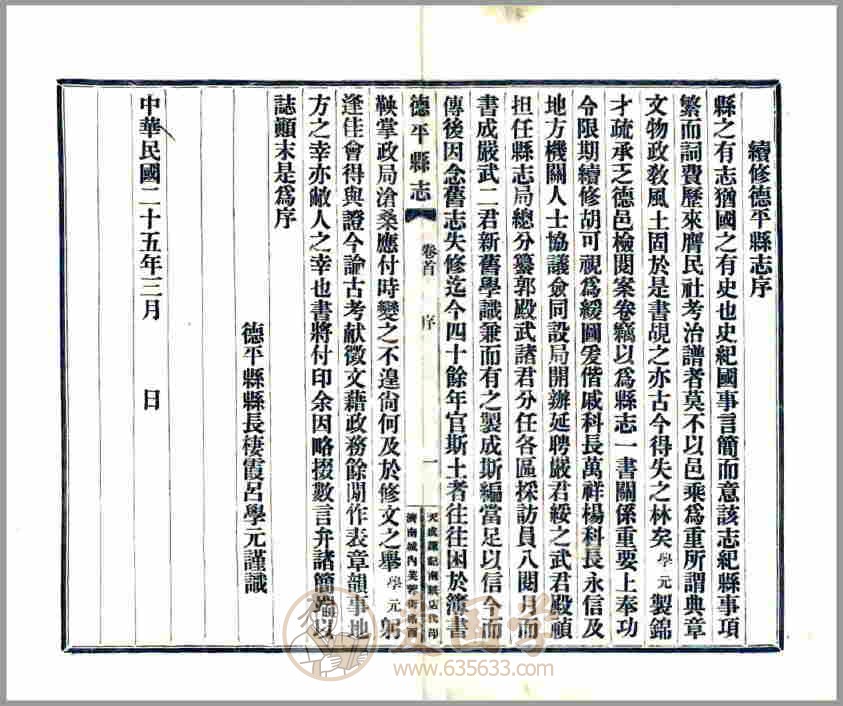 續修德平縣志序
縣之有志猶國之有史也史紀國事言簡而意該志紀縣事項
繁而詞費歷來膺民社考治譜者莫不以邑乘為重所謂典章
文物政教風土固於是書覘之亦古今得失之林矣學元製錦
才疏承乏德邑檢閱案卷竊以為縣志一書關係重要上奉功
令限期續修胡可視為緩圖爰偕戚科長萬祥楊科長永信及
地方機關人士協議僉同設局開辦延聘嚴君綏之武君殿禎
担任縣志局總分纂郭殿武諸君分任各區採訪員八閱月而
書成嚴武二君新舊學識兼而有之製成斯編當足以信今而
傳後因念舊志失修迄今四十餘年官斯土者往往困於簿書
德平縣志
卷首
序
一
濟南城內芙蓉街路西
鞅掌政局滄桑應付時變之不遑尙何及於修文之舉學元躬
逢佳會得與證今論古考献徵文藉政務餘閒作表章韻事地
方之幸亦敝人之幸也書將付印余因略掇數言弁諸簡端以
誌顚末是為序
德平縣縣長棲霞呂學元謹識
中華民國二十五年三月　　日
www.635633.com